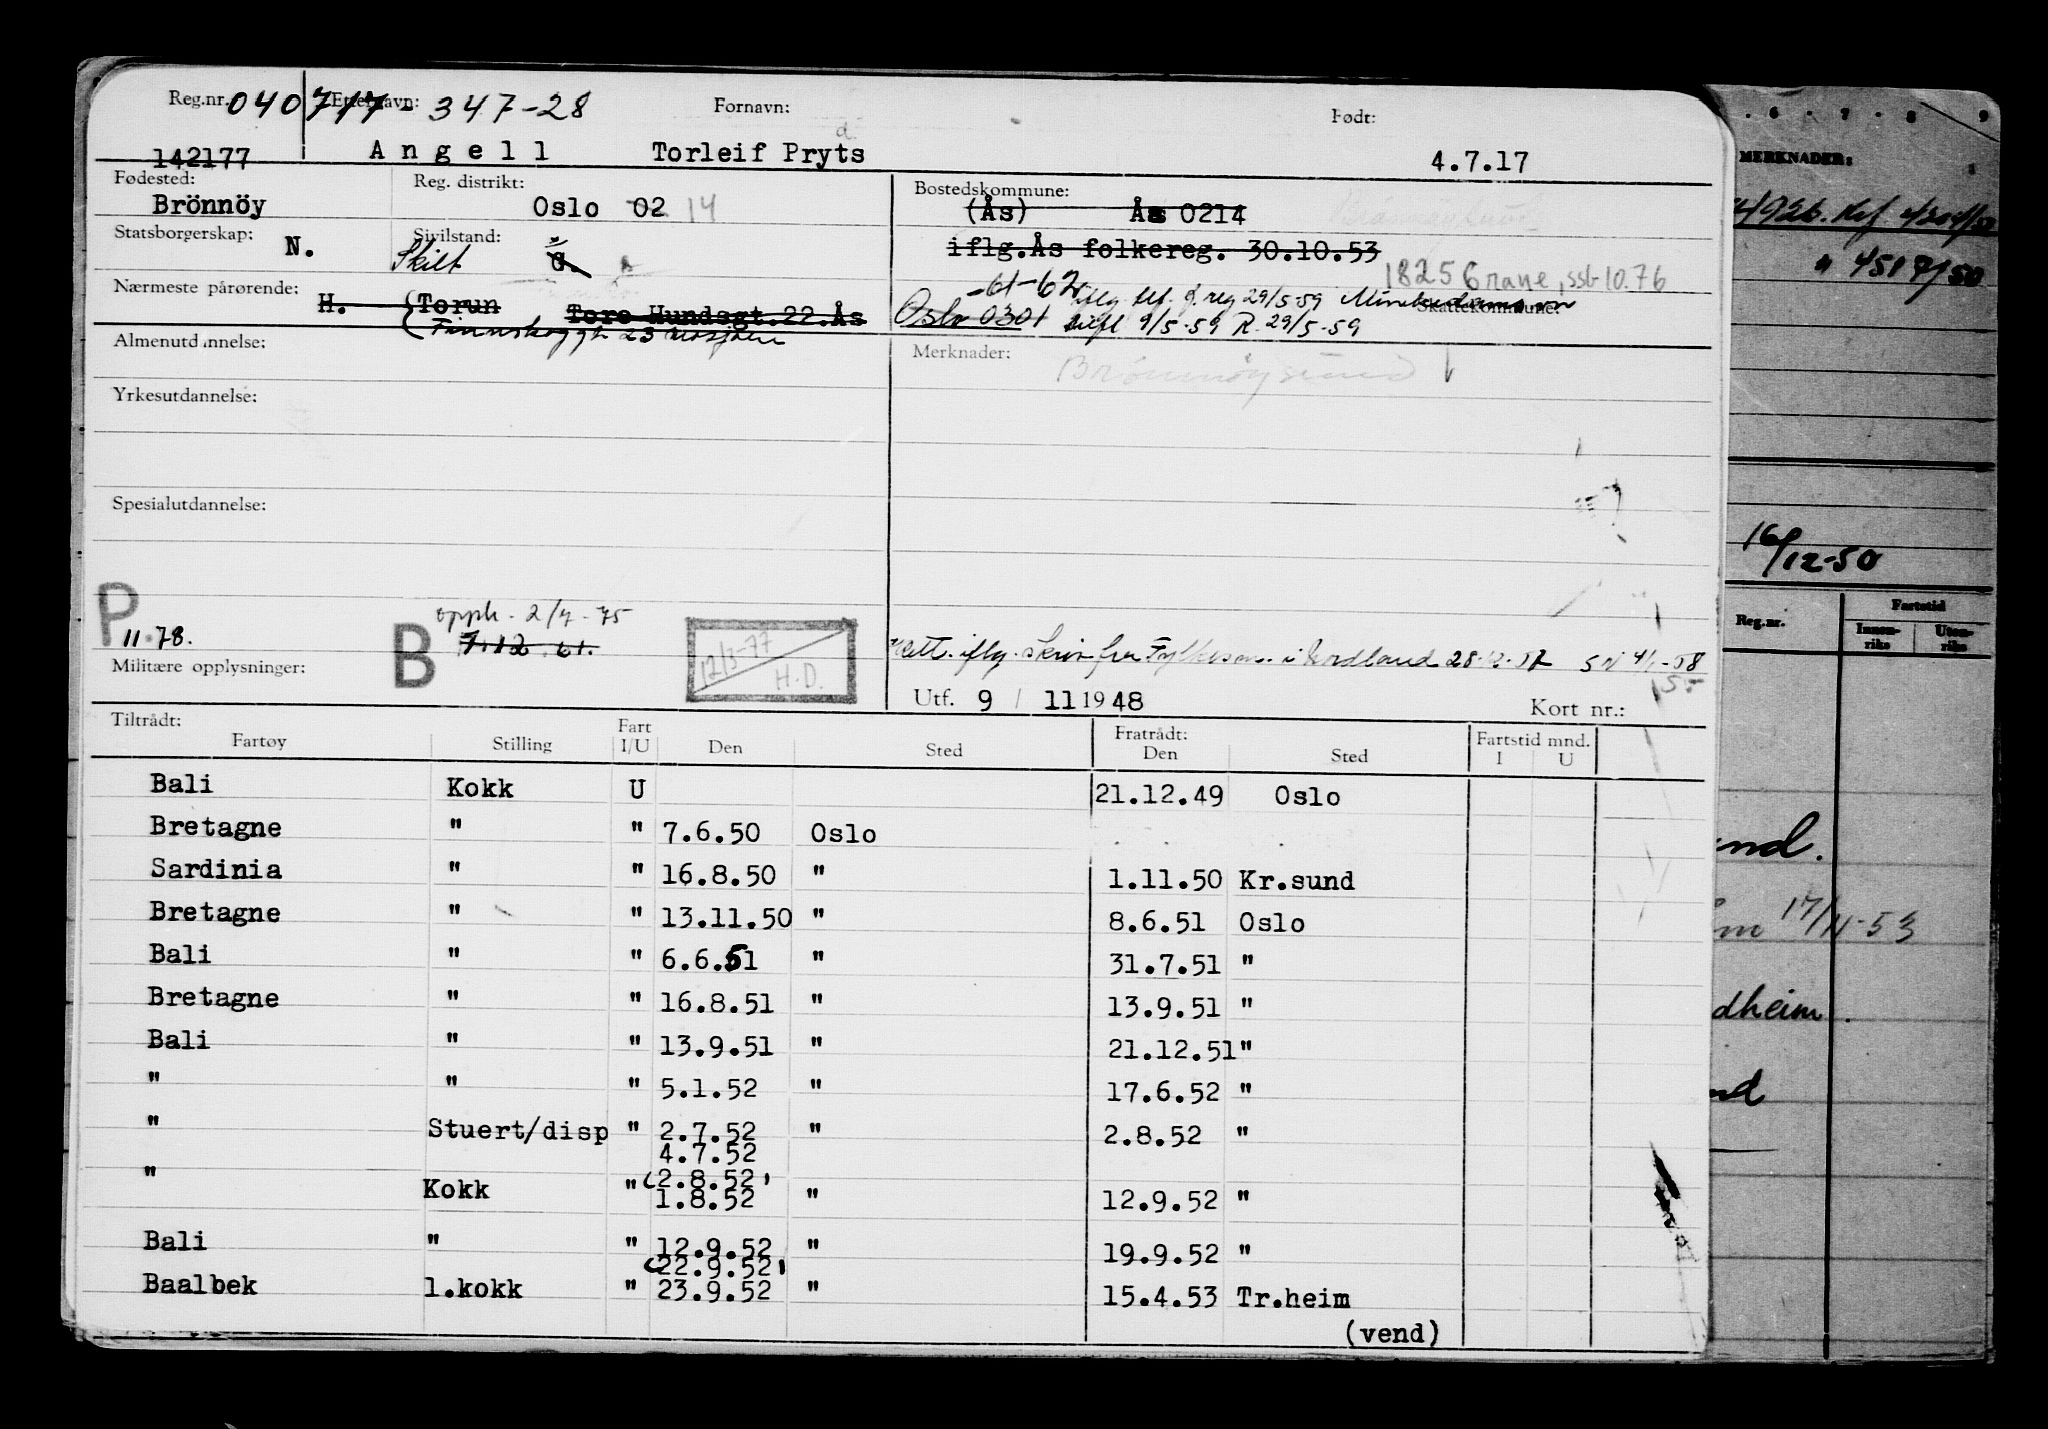 Reg.nr. 040717-347-28 Etternavn: Fornavn: Født:
142177 Angell Torleif Pryts d. 4.7.17
Fødested: Brönnöy Reg. distrikt: Oslo 02 14 Bostedskommune: (Ås) Ås 0214
Statsborgerskap: N. Sivilstand: Skilt G. iflg.Ås folkereg. 30.10.53
-61-62 18256 Grane, ssb 10.76
Nærmeste pårørende: H. (Torun Tore Hundsgt.22.Ås Oslo 0301 29/5-59 Skattekommune:
23 9/5-59 R. 29/5-59
Almenutdannelse: Merknader: Brønnøysund
Yrkesutdannelse:
Spesialutdannelse:
P 11.78. B opph. 2/7-75
7.12.61. 12/3-77 H.D.
Militære opplysninger: iflg. skriv fra i Nordland 28-12-57 4/1-58
Utf. 9 / 11 1948 Kort nr.: 15-
Tiltrådt: Fratrådt: Fartstid mnd.
Fartøy Stilling Fart I/U Den Sted Den Sted I U
Bali Kokk U 21.12.49 Oslo
Bretagne " " 7.6.50 Oslo
Sardinia " " 16.8.50 " 1.11.50 Kr.sund
Bretagne " " 13.11.50 " 8.6.51 Oslo
Bali " " 6.6.51 " 31.7.51 "
Bretagne " " 16.8.51 " 13.9.51 "
Bali " " 13.9.51 " 21.12.51 "
" " " 5.1.52 " 17.6.52 "
" Stuert/disp " 2.7.52 " 2.8.52 "
4.7.52
(2.8.52)
" Kokk " 1.8.52 " 12.9.52 "
Bali " " 12.9.52 " 19.9.52 "
(22.9.52)
Baalbek 1.kokk " 23.9.52 " 15.4.53 Tr.heim
(vend)
6 - 7 - 8 9
MERKNADER:
" 4517/50
16/12-50
Reg.nr. Fartstid
Innen-riks Uten-riks
und.
17/11-53
dheim.
nd